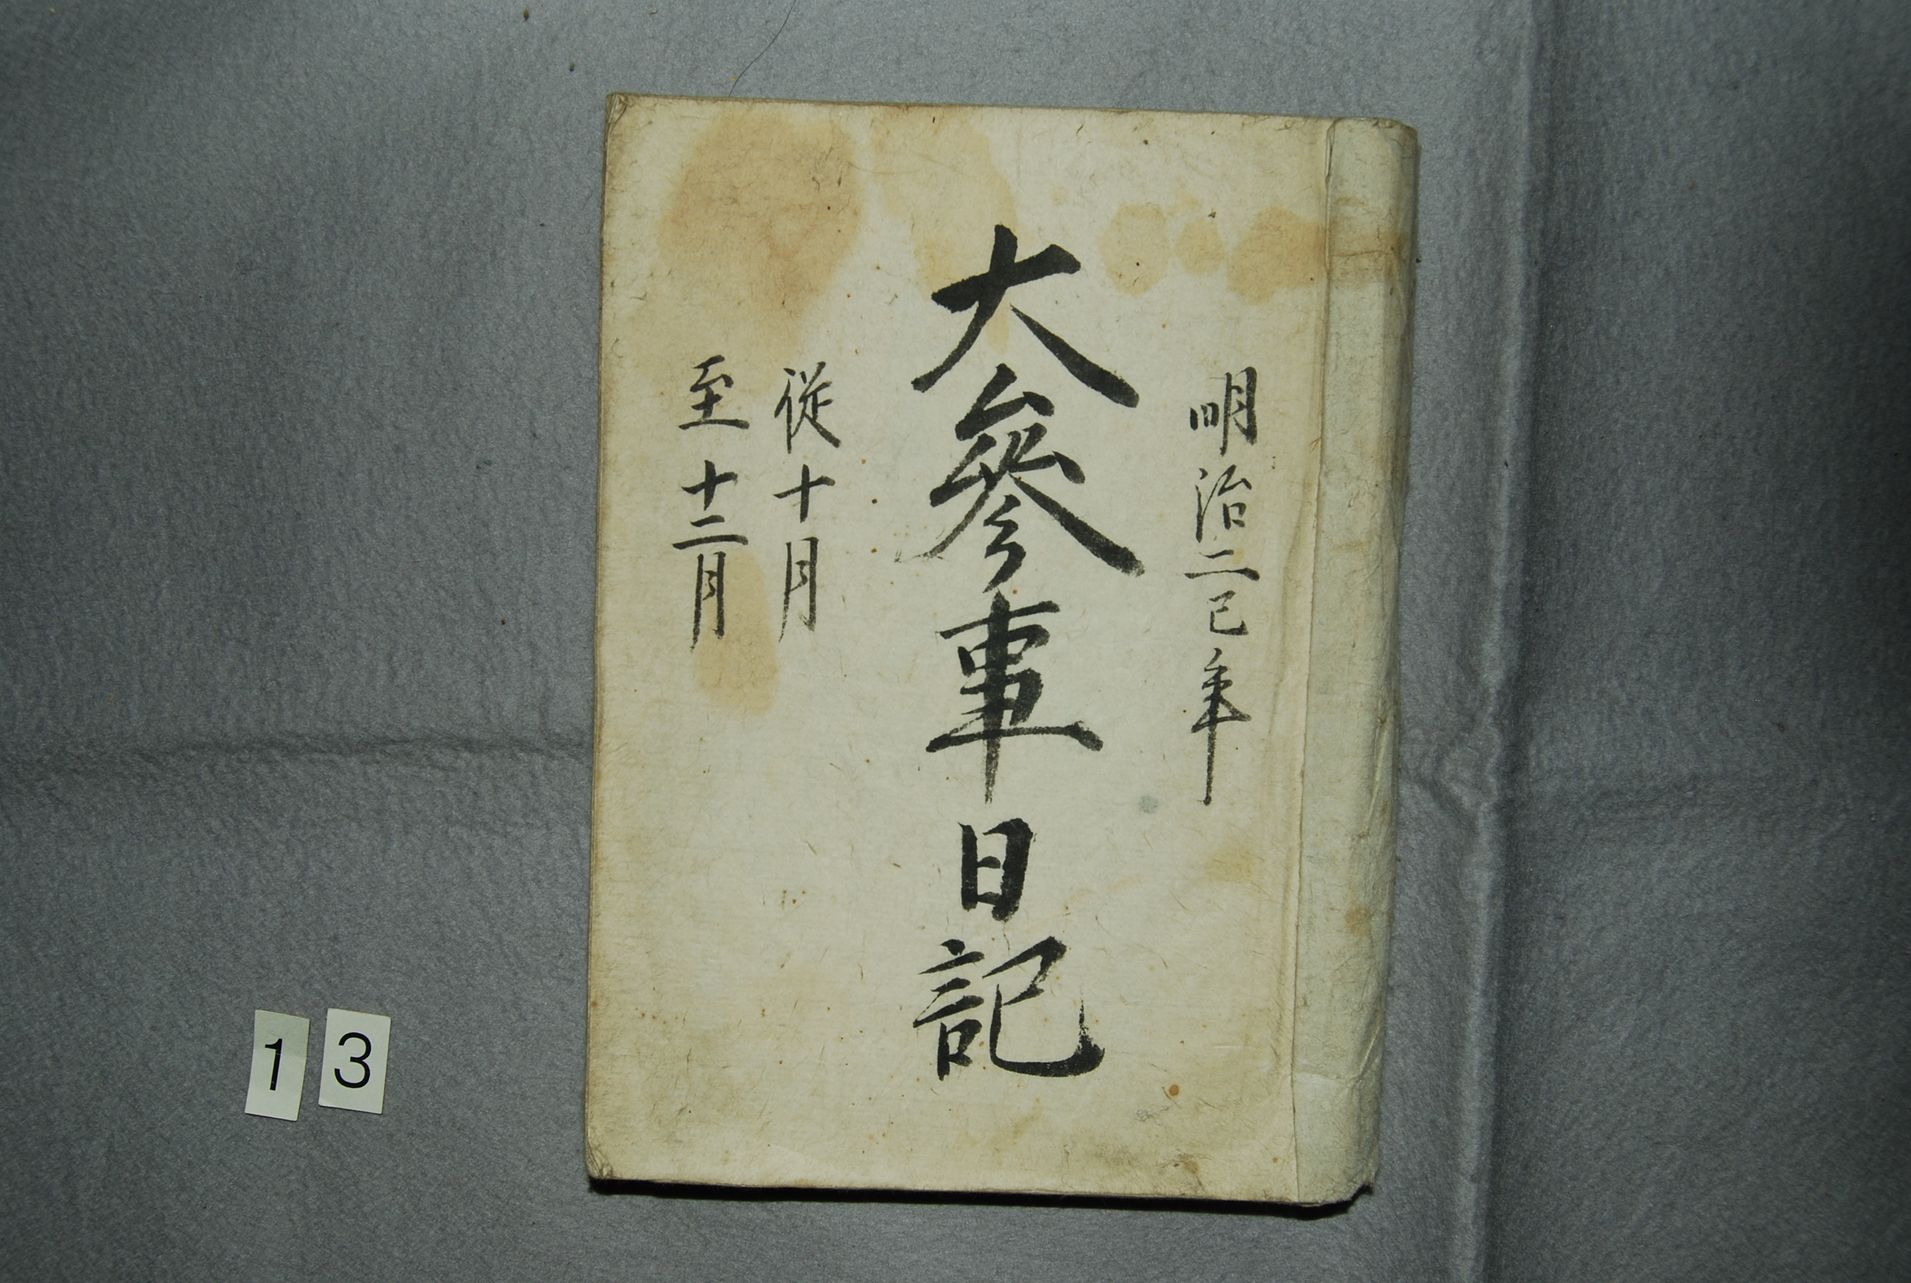 明治二巳年
大參事日記
從十月
至十二月
13